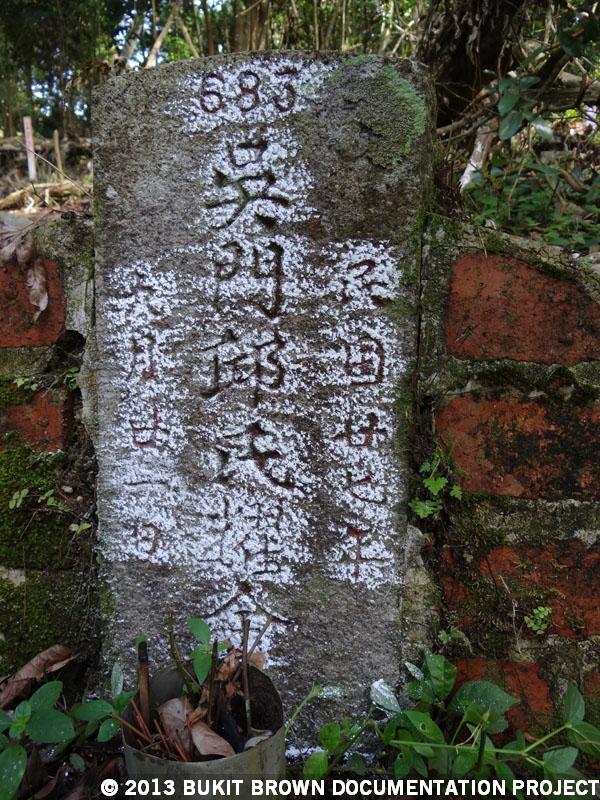 685
民国廿七年
吳門邱氏
六月廿一日
© 2013 BUKIT BROWN DOCUMENTATION PROJECT